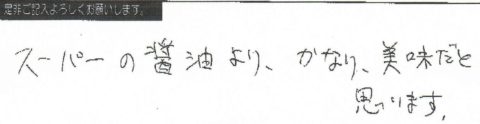 是非ご記入よろしくお願いします。
スーパーの醤油より、かなり、美味だと
思います。